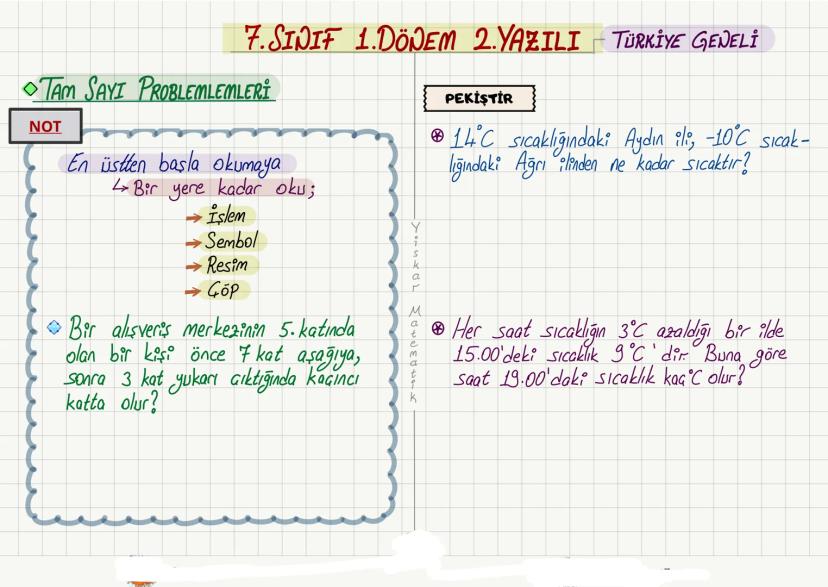 7.SINIF 1.DÖNEM 2.YAZILI TÜRKİYE GENELİ
TAM SAYI PROBLEMLEMLERİ
NOT
En üstten başla okumaya
↳ Bir yere kadar oku;
→ İşlem
→ Sembol
→ Resim
→ ÇÖP
Bir alışveriş merkezinin 5. katında
olan bir kişi önce 7 kat aşağıya,
sonra 3 kat yukarı çıktığında kaçıncı
katta olur?
PEKİŞTİR
14°C sıcaklığındaki Aydın ili, -10°C sıcak-
lığındaki Ağrı ilinden ne kadar sıcaktır?
Her saat sıcaklığın 3°C azaldığı bir ilde
15.00'deki sıcaklık 9°C 'dir. Buna göre
saat 19.00'daki sıcaklık kaç°C olur?
Yiskar Matematik